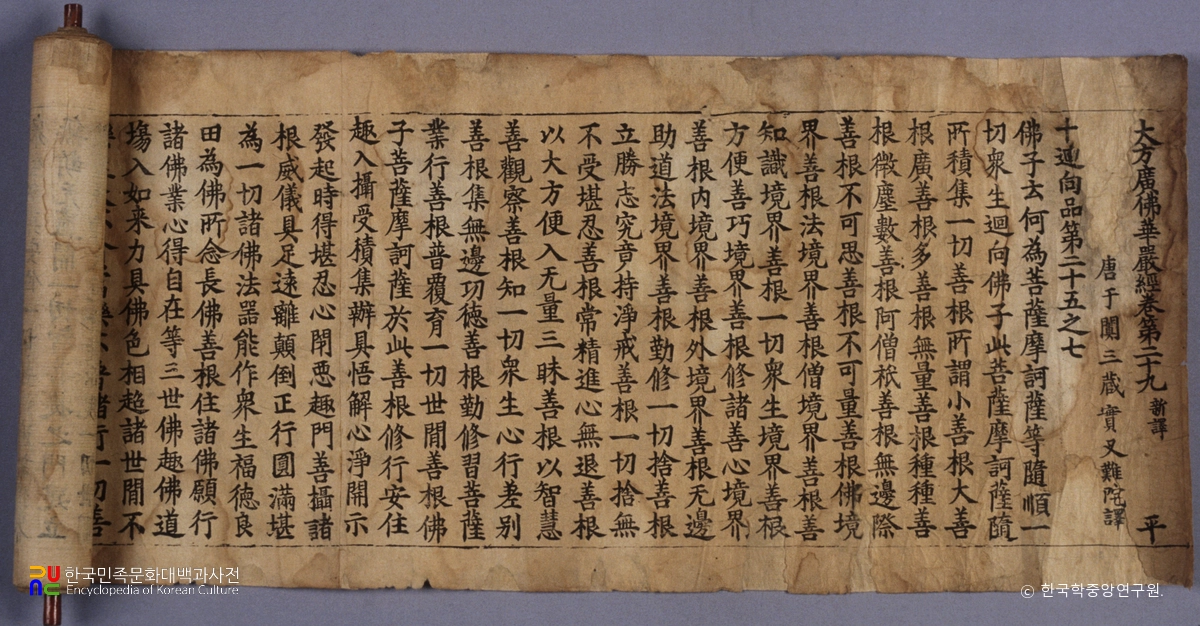 大方廣佛華嚴經卷第二十九 新譯 平
唐于闐三藏實叉難陀譯
十迴向品第二十五之七
佛子云何為菩薩摩訶薩等隨順一
切衆生迴向佛子此菩薩摩訶薩隨
所積集一切善根所謂小善根大善
根廣善根多善根無量善根種種善
根微塵數善根阿僧祇善根無邊際
善根不可思善根不可量善根佛境
界善根法境界善根僧境界善根善
知識境界善根一切衆生境界善根
方便善巧境界善根修諸善心境界
善根内境界善根外境界善根无邊
助道法境界善根勤修一切捨善根
立勝志究竟持淨戒善根一切捨無
不受堪忍善根常精進心無退善根
以大方便入无量三昧善根以智慧
善觀察善根知一切衆生心行差别
善根集無邊功徳善根勤修習菩薩
業行善根普覆育一切世間善根佛
子菩薩摩訶薩於此善根修行安住
趣入攝受積集辦具悟解心淨開示
發起時得堪忍心閉惡趣門善攝諸
根威儀具足遠離顛倒正行圓滿堪
為一切諸佛法器能作衆生福徳良
田為佛所念長佛善根住諸佛願行
諸佛業心得自在等三世佛趣佛道
場入如来力具佛色相超諸世間不
諸行一切善
한국민족문화대백과사전
Encyclopedia of Korean Culture
© 한국학중앙연구원.